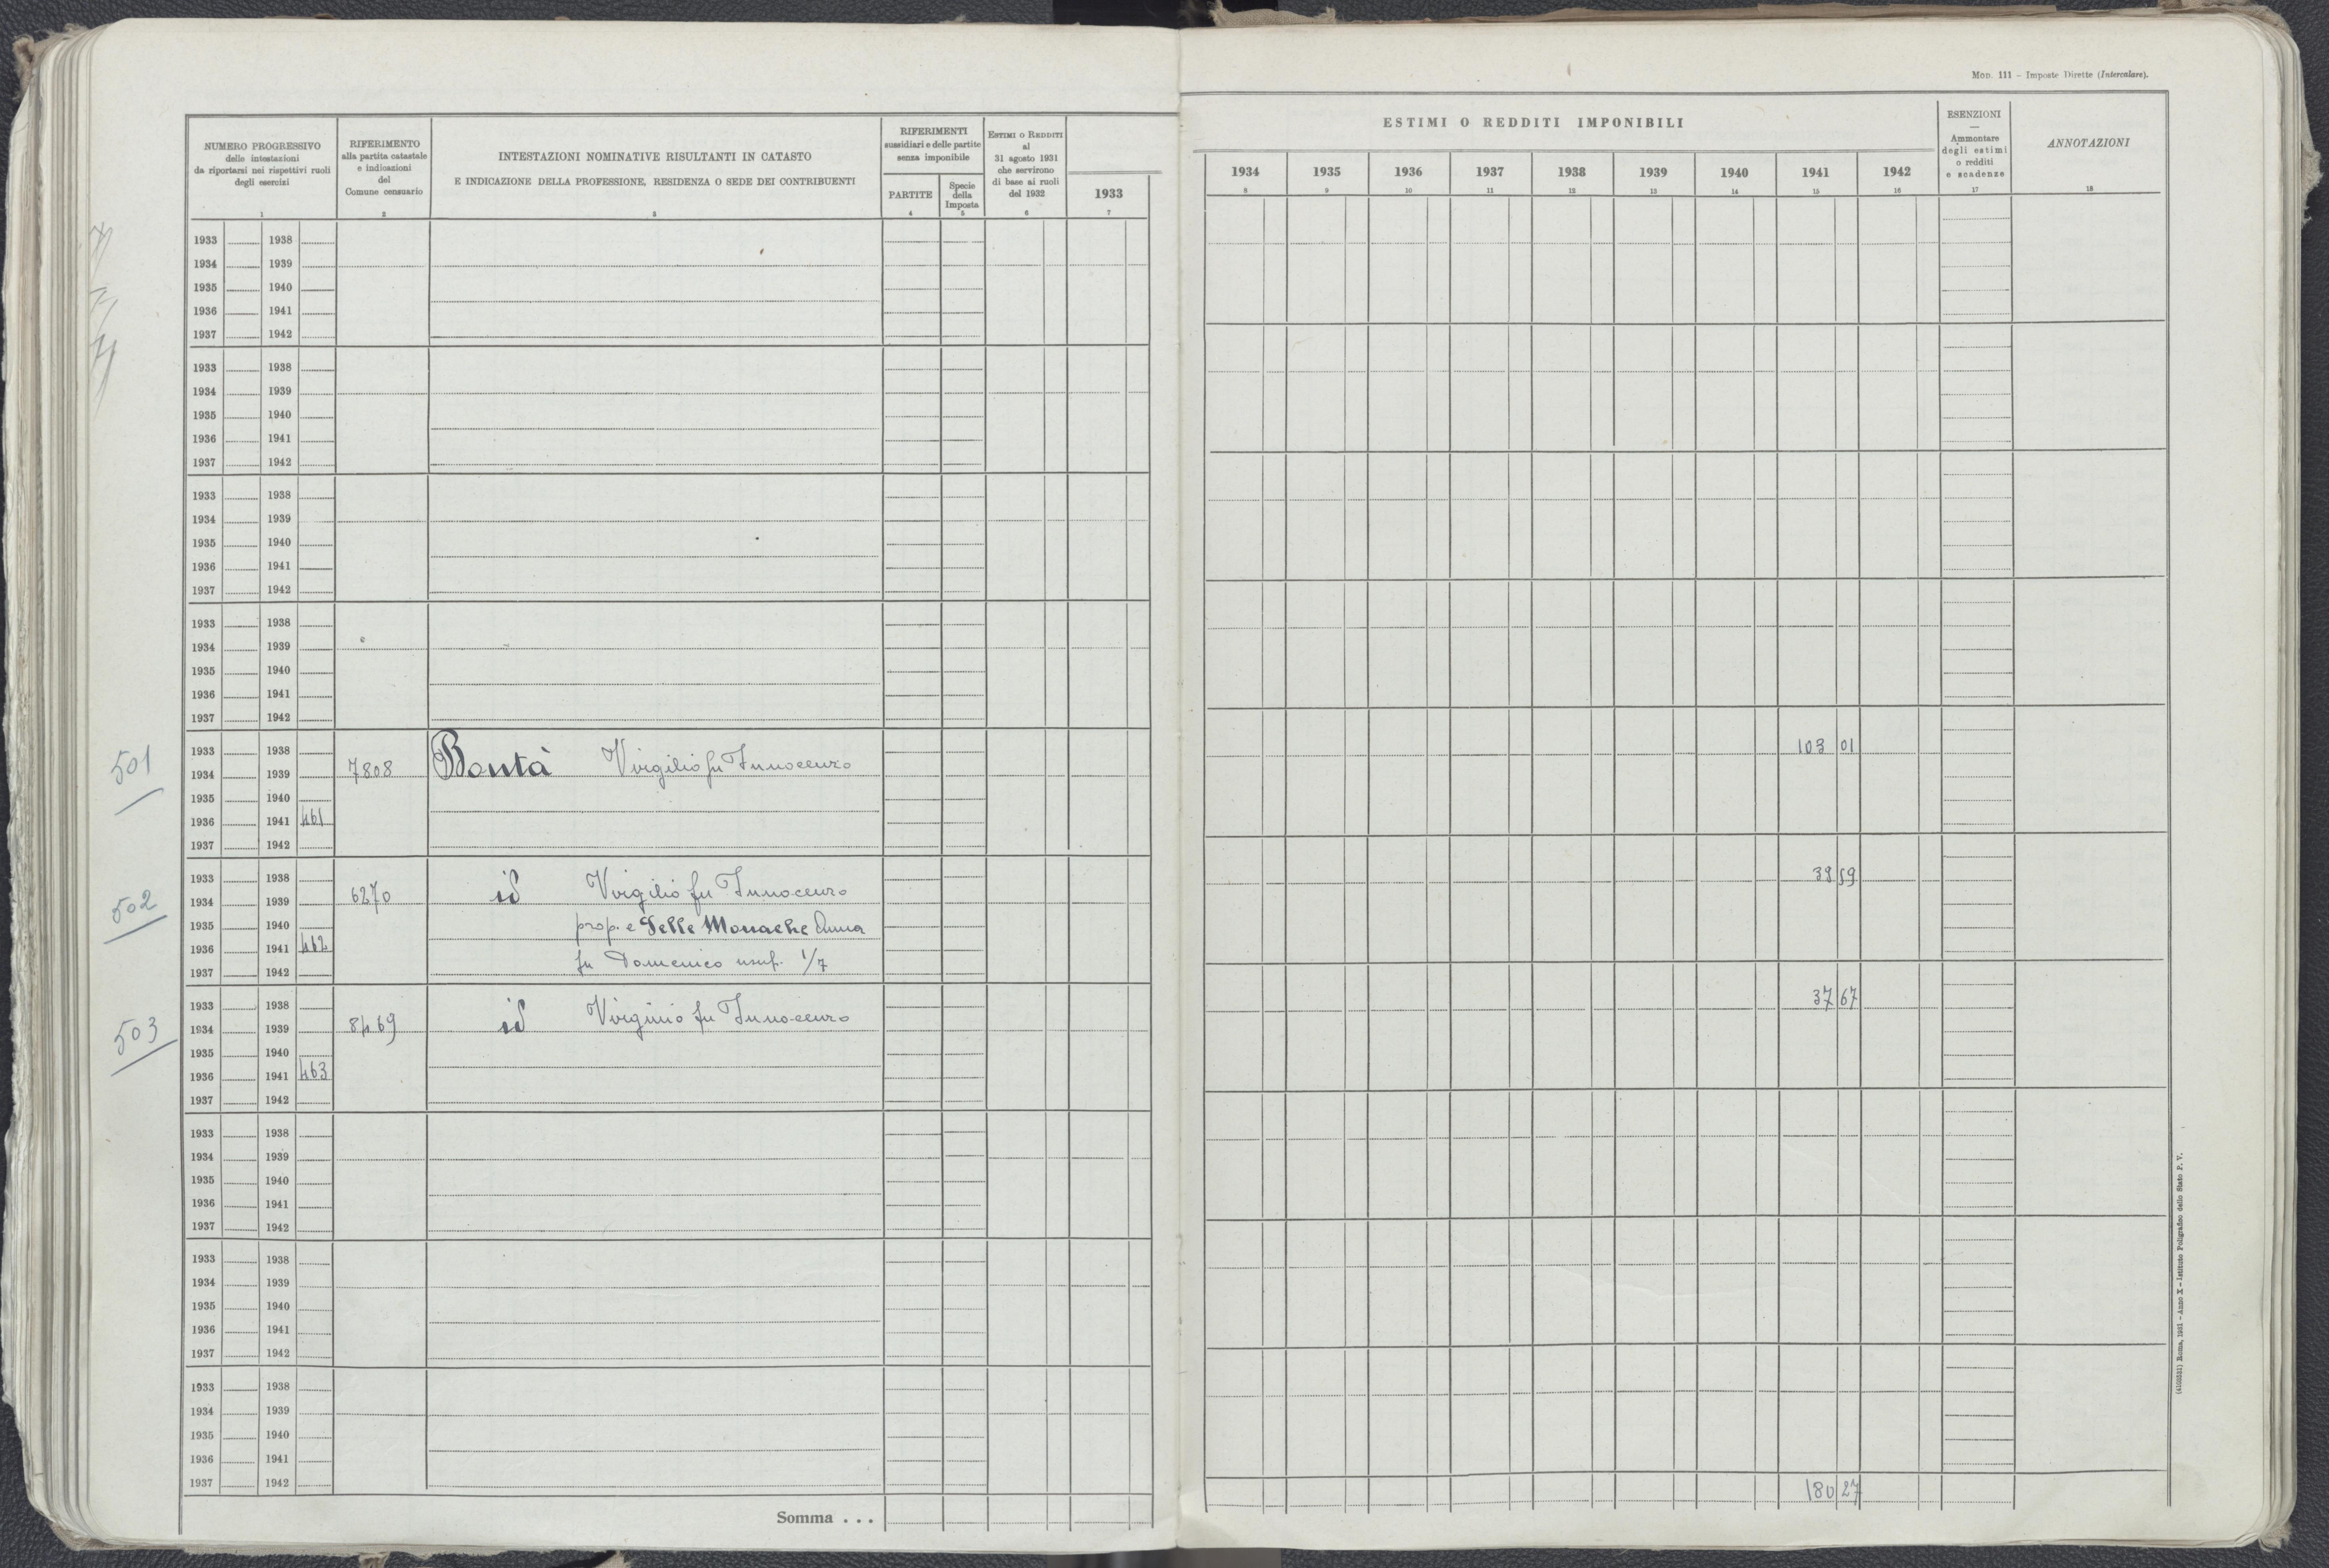 Mod. 111 - Imposte Dirette (Intercalare).
NUMERO PROGRESSIVO
delle intestazioni
da riportarsi nei rispettivi ruoli
degli esercizi
1
RIFERIMENTO
alla partita catastale
e indicazioni
del
Comune censuario
2
INTESTAZIONI NOMINATIVE RISULTANTI IN CATASTO
E INDICAZIONE DELLA PROFESSIONE, RESIDENZA O SEDE DEI CONTRIBUENTI
3
RIFERIMENTI
sussidiari e delle partite
senza imponibile
PARTITE
4
Specie
della
Imposta
5
ESTIMI O REDDITI
al
31 agosto 1931
che servirono
di base ai ruoli
del 1932
6
1933
7
ESTIMI O REDDITI IMPONIBILI
1934 1935 1936 1937 1938 1939 1940 1941 1942
8 9 10 11 12 13 14 15 16
ESENZIONI
—
Ammontare
degli estimi
o redditi
e scadenze
17
ANNOTAZIONI
18
1933 1938
1934 1939
1935 1940
1936 1941
1937 1942
1933 1938
1934 1939
1935 1940
1936 1941
1937 1942
1933 1938
1934 1939
1935 1940
1936 1941
1937 1942
1933 1938
1934 1939
1935 1940
1936 1941
1937 1942
501
1933 1938 103 01
1934 1939 7808 Bontà Virgilio fu Innocenzo
1935 1940
1936 1941 461
1937 1942
502
1933 1938 39 59
1934 1939 6270 id Virgilio fu Innocenzo
1935 1940 prop. e Delle Monache Anna
1936 1941 462
1937 1942 fu Domenico usuf. 1/7
503
1933 1938 37 67
1934 1939 8469 id Virginio fu Innocenzo
1935 1940
1936 1941 463
1937 1942
1933 1938
1934 1939
1935 1940
1936 1941
1937 1942
1933 1938
1934 1939
1935 1940
1936 1941
1937 1942
1933 1938
1934 1939
1935 1940
1936 1941
1937 1942
Somma . . . 180 27
(4100531) Roma, 1931 - Anno X - Istituto Poligrafico dello Stato P. V.